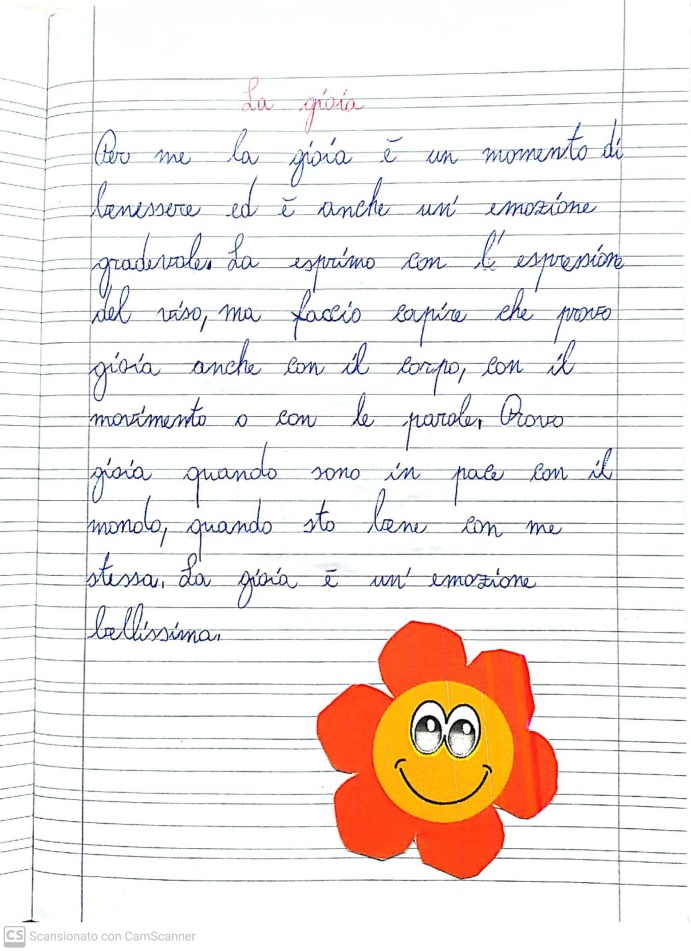 La gioia
Per me la gioia è un momento di
benessere ed è anche un' emozione
gradevole. La esprimo con l' espressione
del viso, ma faccio capire che provo
gioia anche con il corpo, con il
movimento o con le parole. Provo
gioia quando sono in pace con il
mondo, quando sto bene con me
stessa. La gioia è un' emozione
bellissima.
CS Scansionato con CamScanner